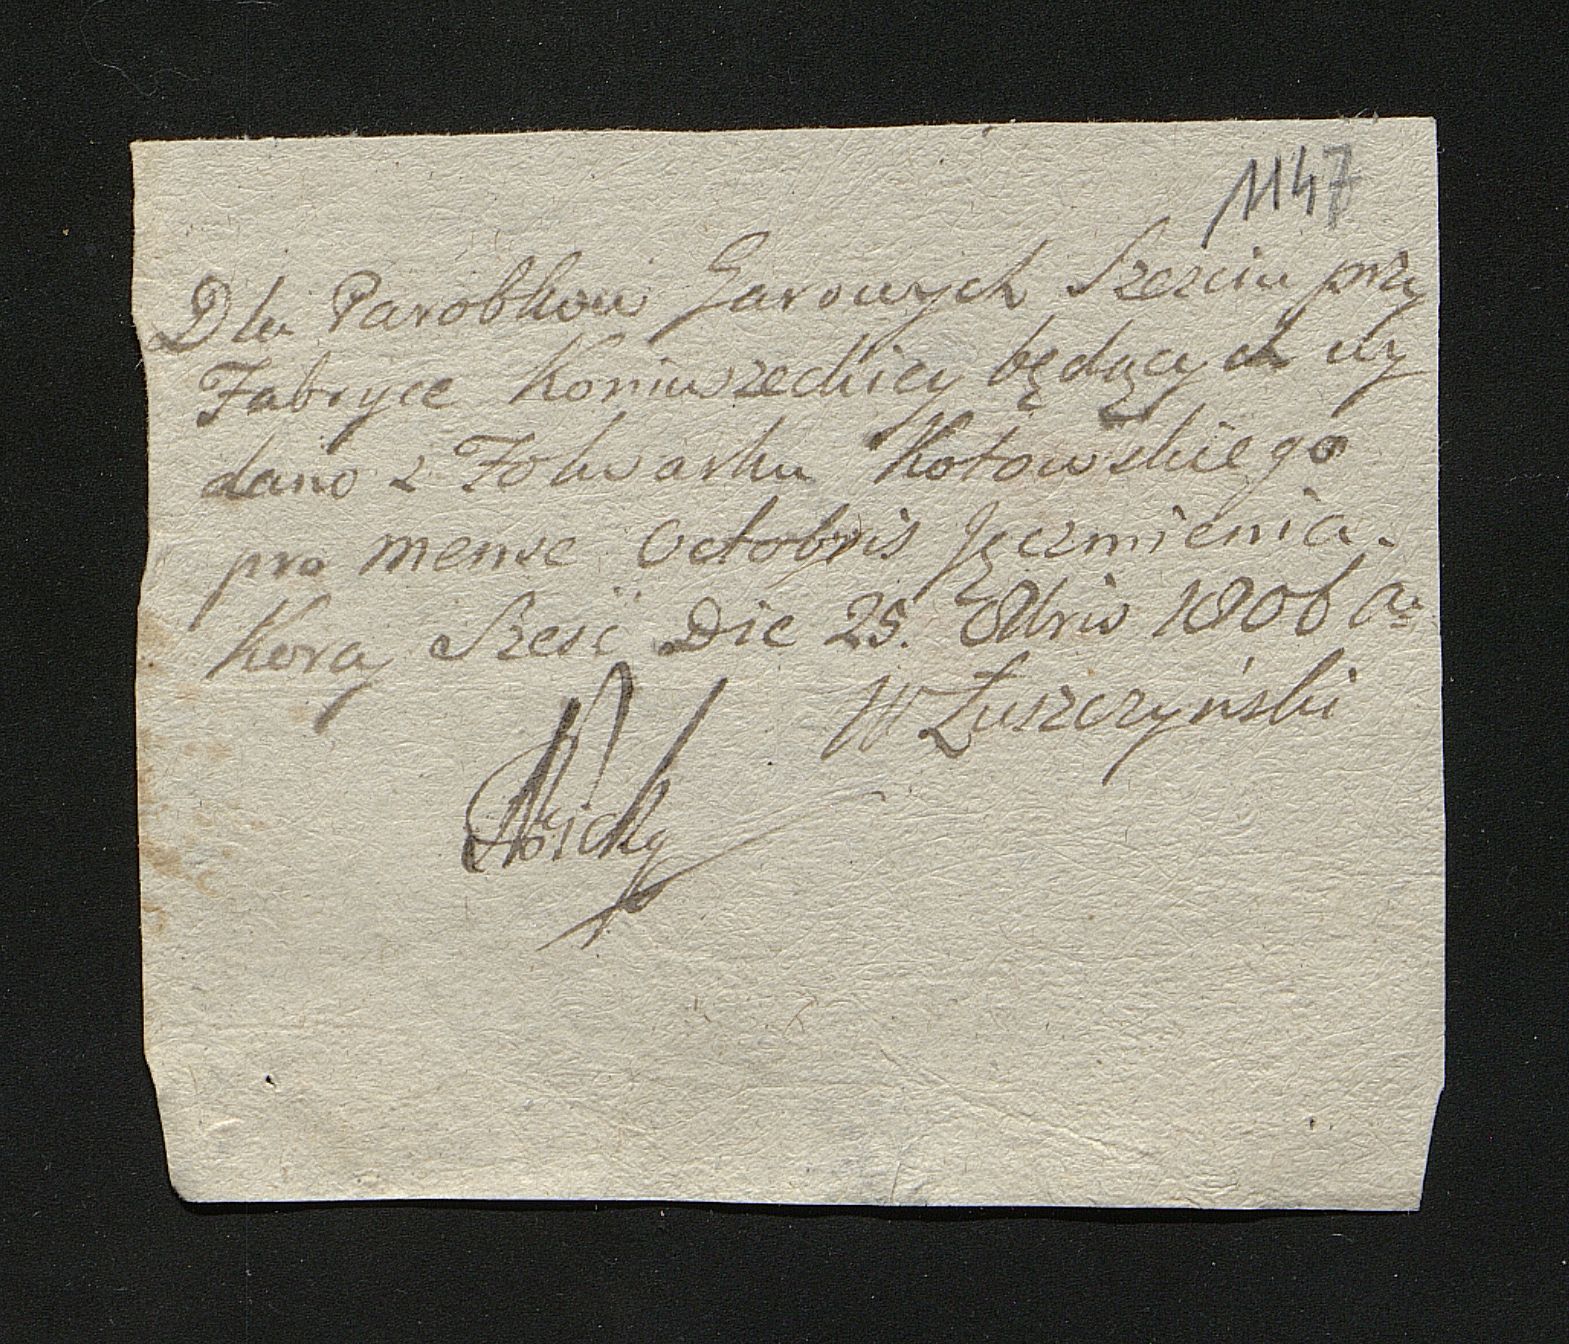 1147
Dla Parobkow Garowych Szesciu przy
Fabryce Koniuszeckiey będących wy
dano z Folwarku Kotowskiego
pro mense Octobris Jęczmienia
Korcy Szesć Die 25. 8bris 1806 a
W Łuszczyński